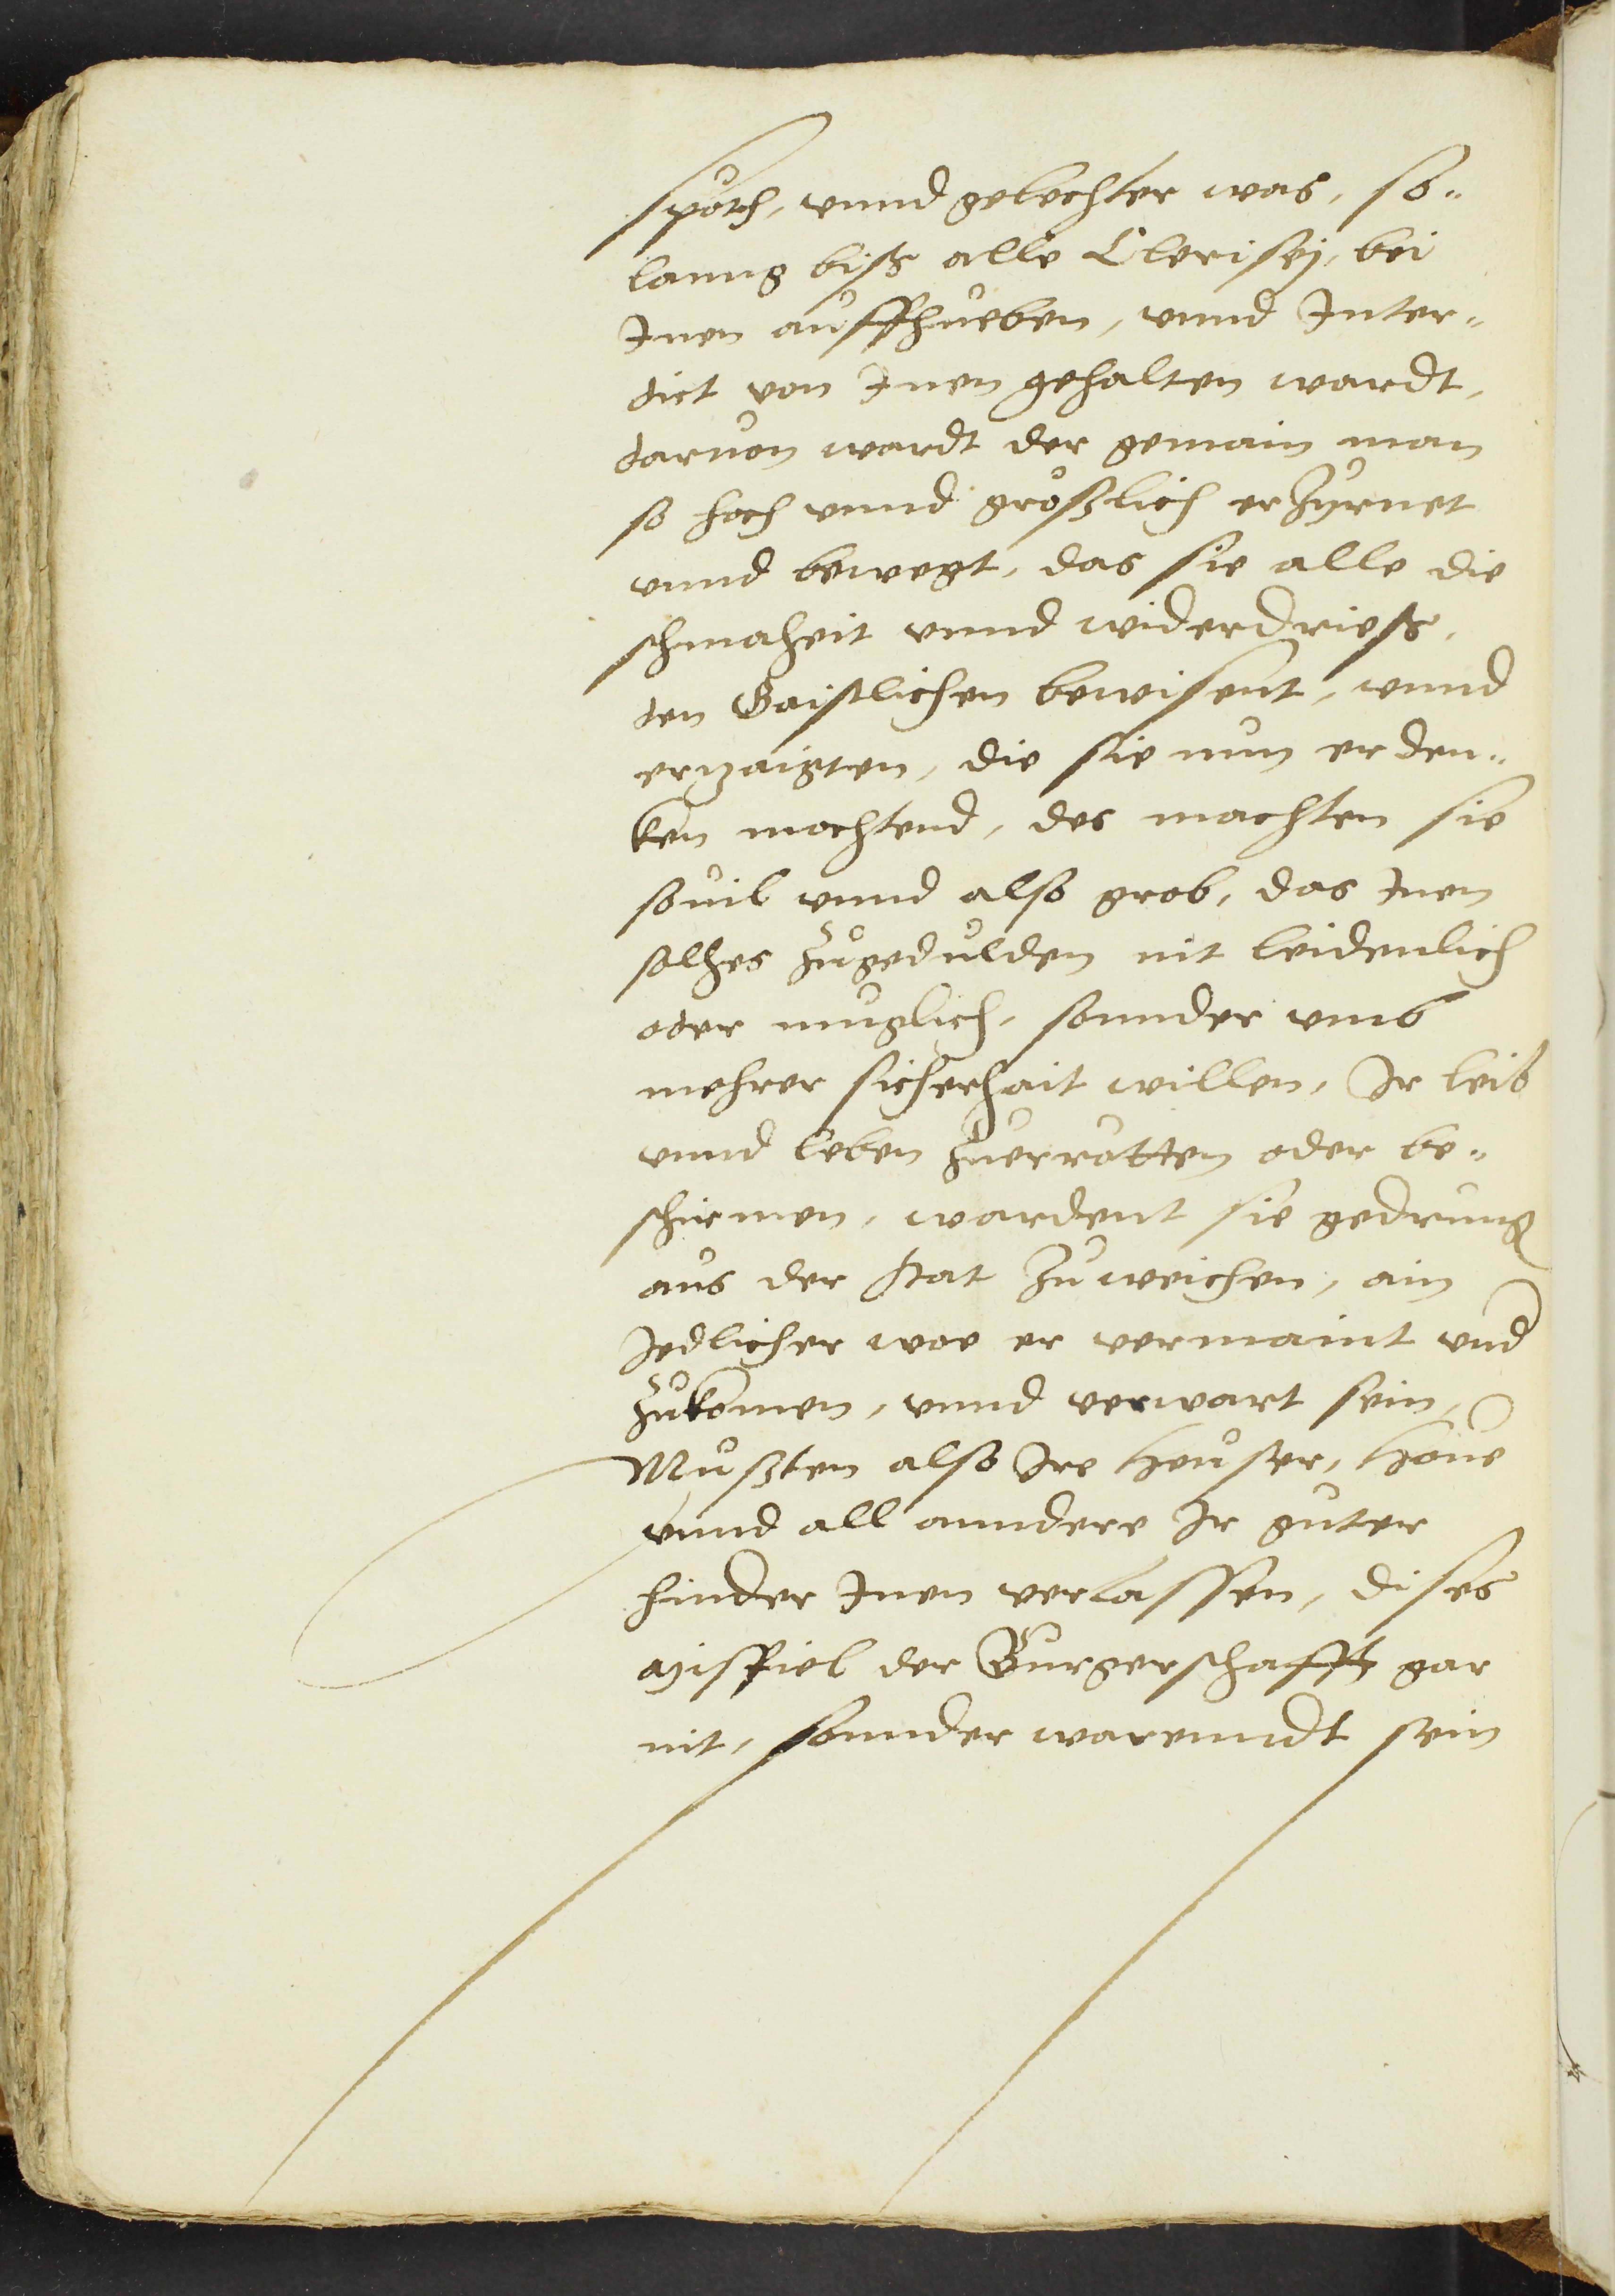 spoth, vnnd gelechter was, so„
lanng biß alle Clerisej, bei
Inen auffhueben, vnnd Inter„
dict von Inen gehalten wardt,
daruon wardt der gemain man
so hoch vnnd großlich erzyrnet
vnnd bewegt, das sie alle die
schmaheit vnnd widerdrieß,
den Gaistlichen bewisent, vnnd
erzaigten, die sie nun erden„
ken mochtend, des machten sie
souil vnnd also grob, das Inen
solhes zugedulden nit leidenlich
oder muglich, sonnder vmb
mehrer sicherhait willen, Ir leib
vnnd leben zuerrotten oder be„
schirmen, wardent sie gedrung
aus der stat zu weichen, ain
Jedlicher woe er vermaint vnd
zukomen, vnnd verwart sein,
Mußten also Ire heuser, höue
vnnd all anndere Ir guter
hinder Inen verlassen, dises
misfiel der Burgerschafft gar
nit, sonnder warenndt sein